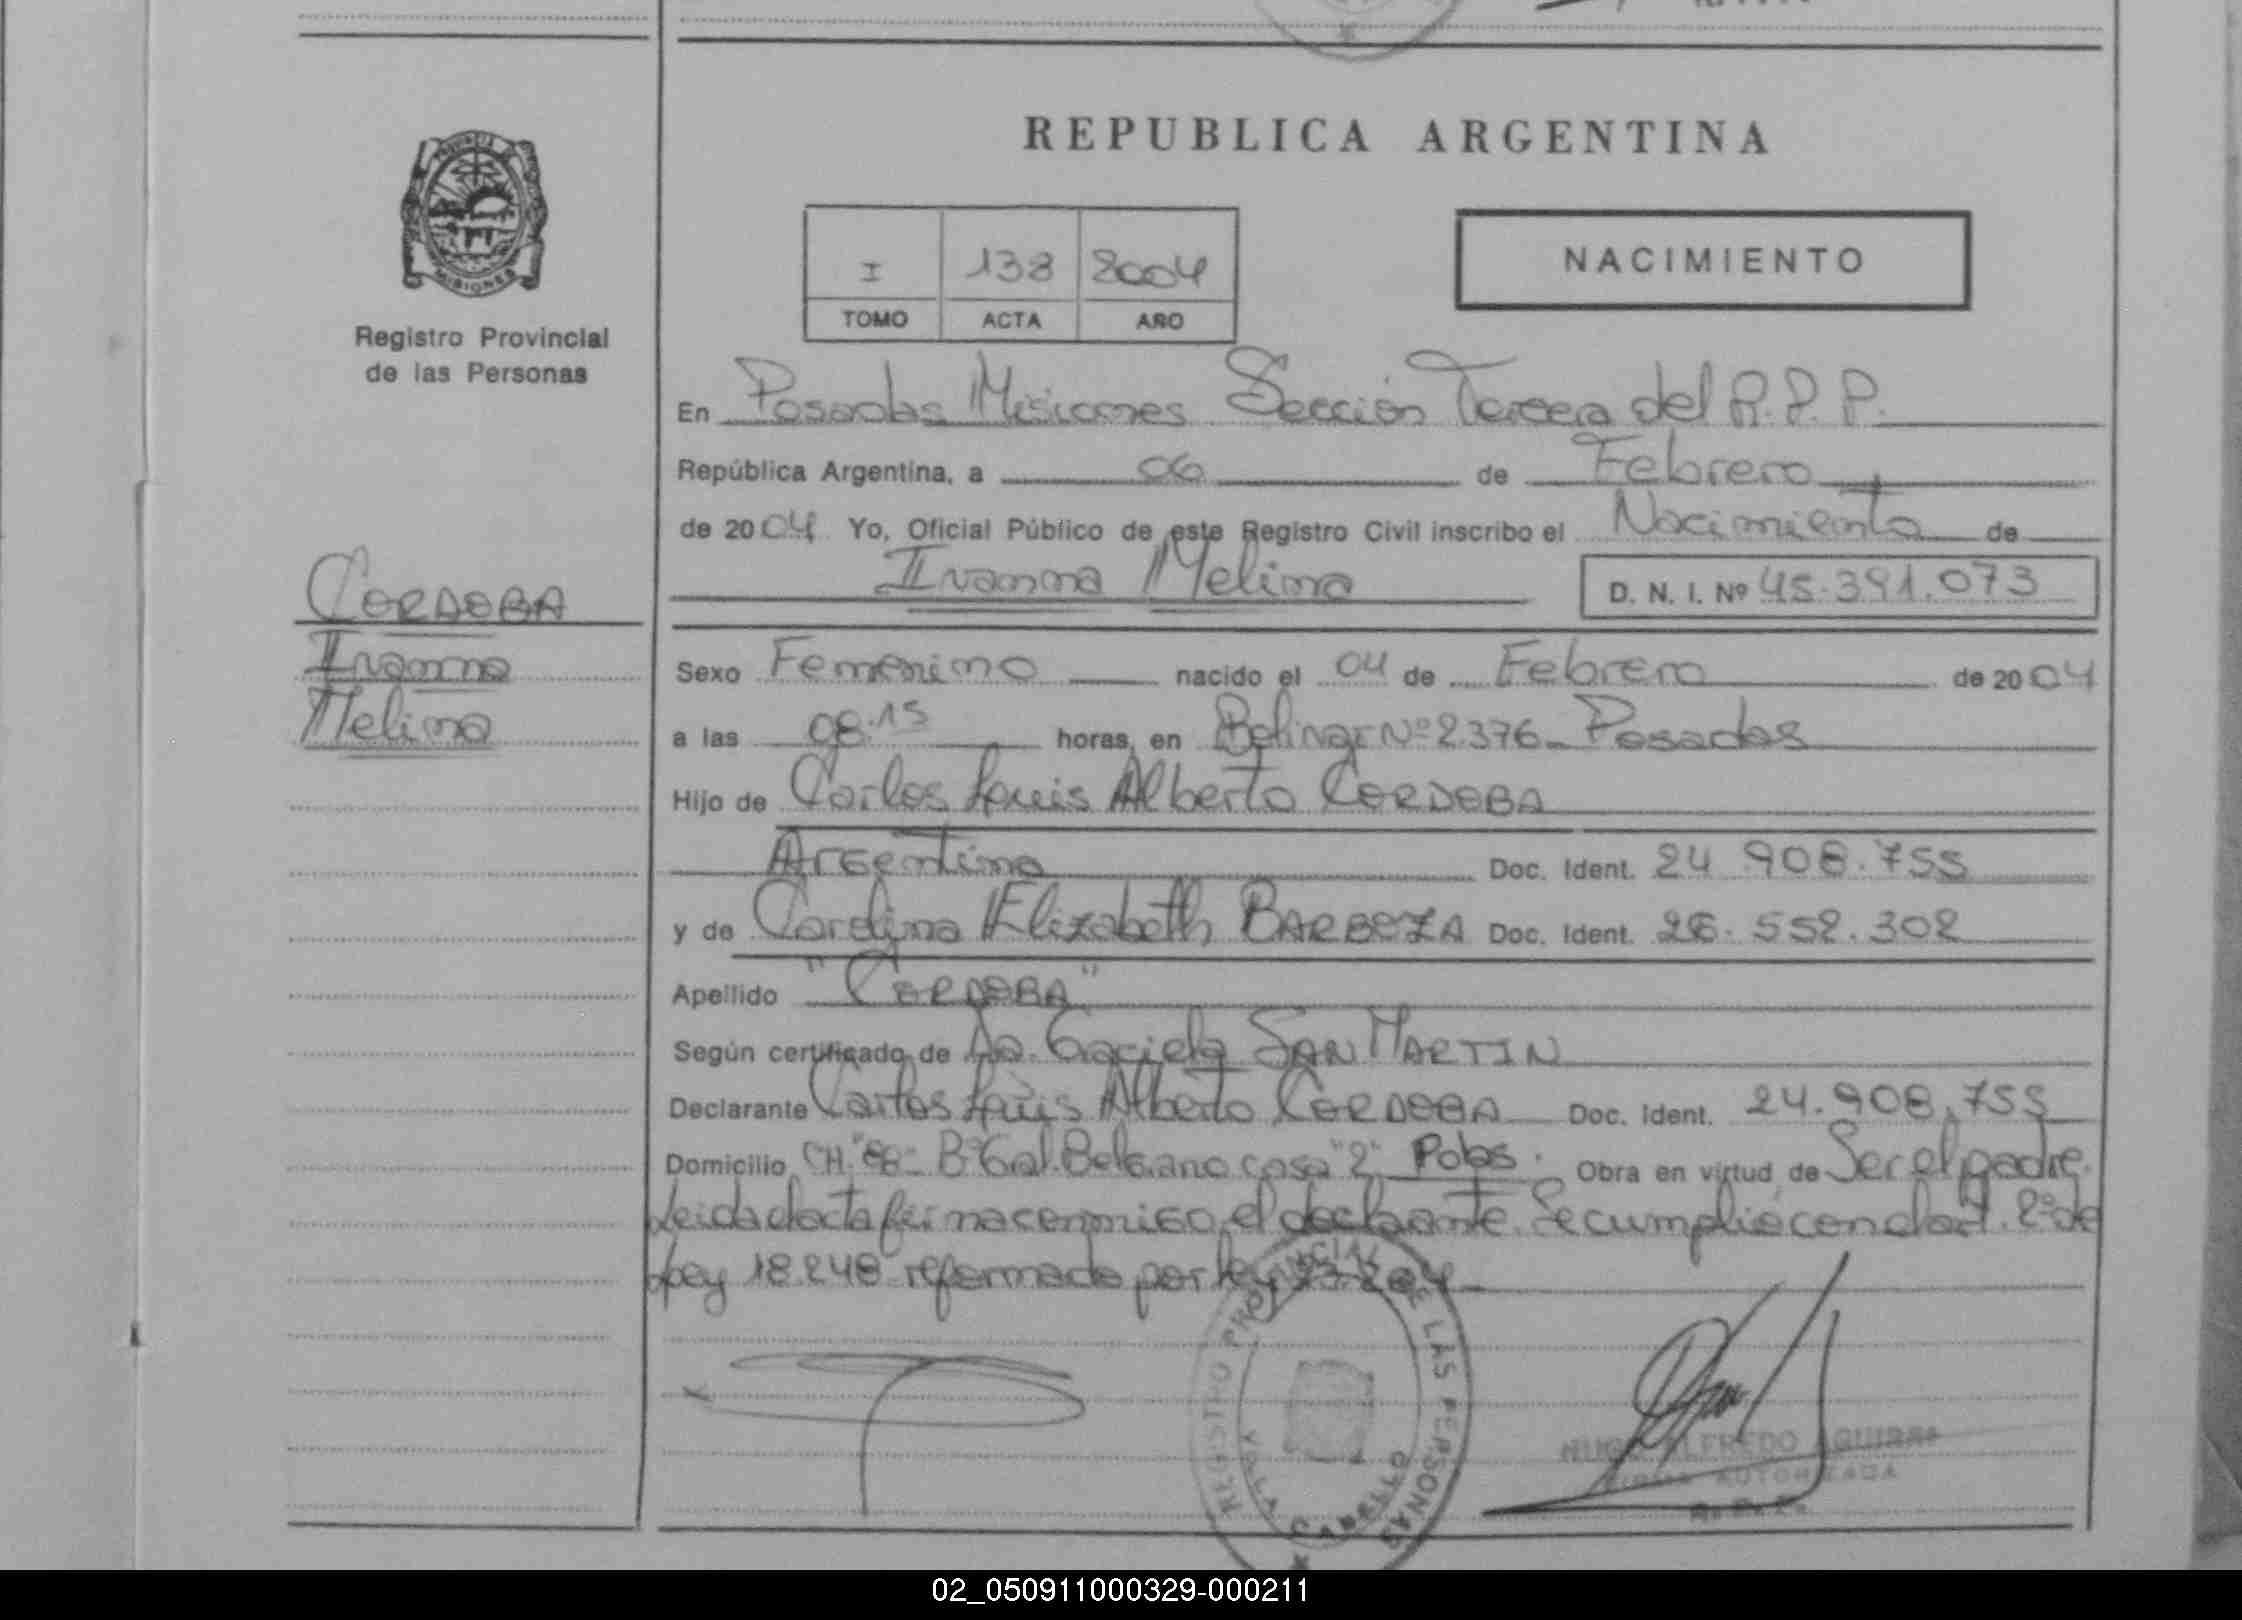 REPUBLICA ARGENTINA
MISIONES
Registro Provincial
de las Personas
I 138 2004
TOMO ACTA AÑO
NACIMIENTO
En Posadas Misiones Sección Tercera del R.P.P.
República Argentina, a 06 de Febrero
de 2004 Yo, Oficial Público de este Registro Civil inscribo el Nacimiento de
Ivanna Melina D. N. I. Nº 45.391.073
CORDOBA
Ivanna
Melina
Sexo Femenino nacido el 04 de Febrero de 2004
a las 08:15 horas, en Bolivar Nº 2.376 - Posadas
Hijo de Carlos Luis Alberto CORDOBA
Argentino Doc. Ident. 24.908.755
y de Carolina Elizabeth BARBOZA Doc. Ident. 26.552.302
Apellido "CORDOBA"
Según certificado de Da. Graciela SAN MARTIN
Declarante Carlos Luis Alberto CORDOBA Doc. Ident. 24.908.755
Domicilio CH. "88" Bº Gral. Belgrano casa "2" Pdas. Obra en virtud de Ser el padre.
Leida el acta firma conmigo el declarante. Se cumplió con el art. 2º de
Ley 18.248 reformado por ley
REGISTRO PROVINCIAL DE LAS PERSONAS
VILLA CABELLO
HUGO ALFREDO AGUIRRE
FIRMA AUTORIZADA
R.P.P.
02_050911000329-000211